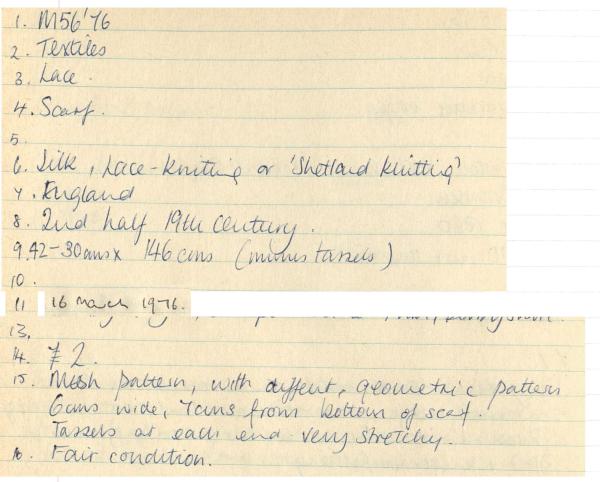 1. M56'76
2. Textiles
3. Lace.
4. Scarf.
5.
6. Silk, Lace-knitting or 'Shetland knitting'
7. England
8. 2nd half 19th century.
9. 42-30cms x 146 cms (minus tassels)
10.
11 16 March 1976.
13.
14. £2.
15. Mesh pattern, with diffent, geometric pattern
6cms wide, 7cms from bottom of scarf.
Tassels at each end. very stretchy.
16. Fair condition.